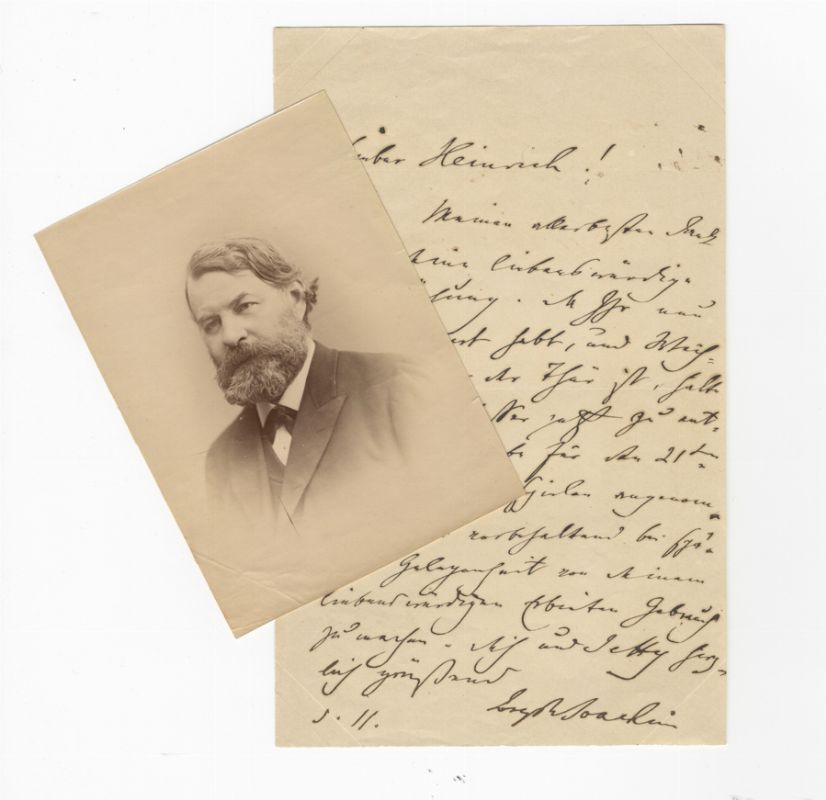 Lieber Heinrich!
Meinen allerbesten Dank
liebenswürdige
Da Ihr nun
habt, und Weih-
der Thür ist, halte
zu ant-
für den 21ten
angenom-
vorbehaltend bei
Gelegenheit von Deinem
liebenswürdigen Erbieten Gebrauch
zu machen. Dich und Jetty herz-
lich grüßend
Joseph Joachim
5. 11.